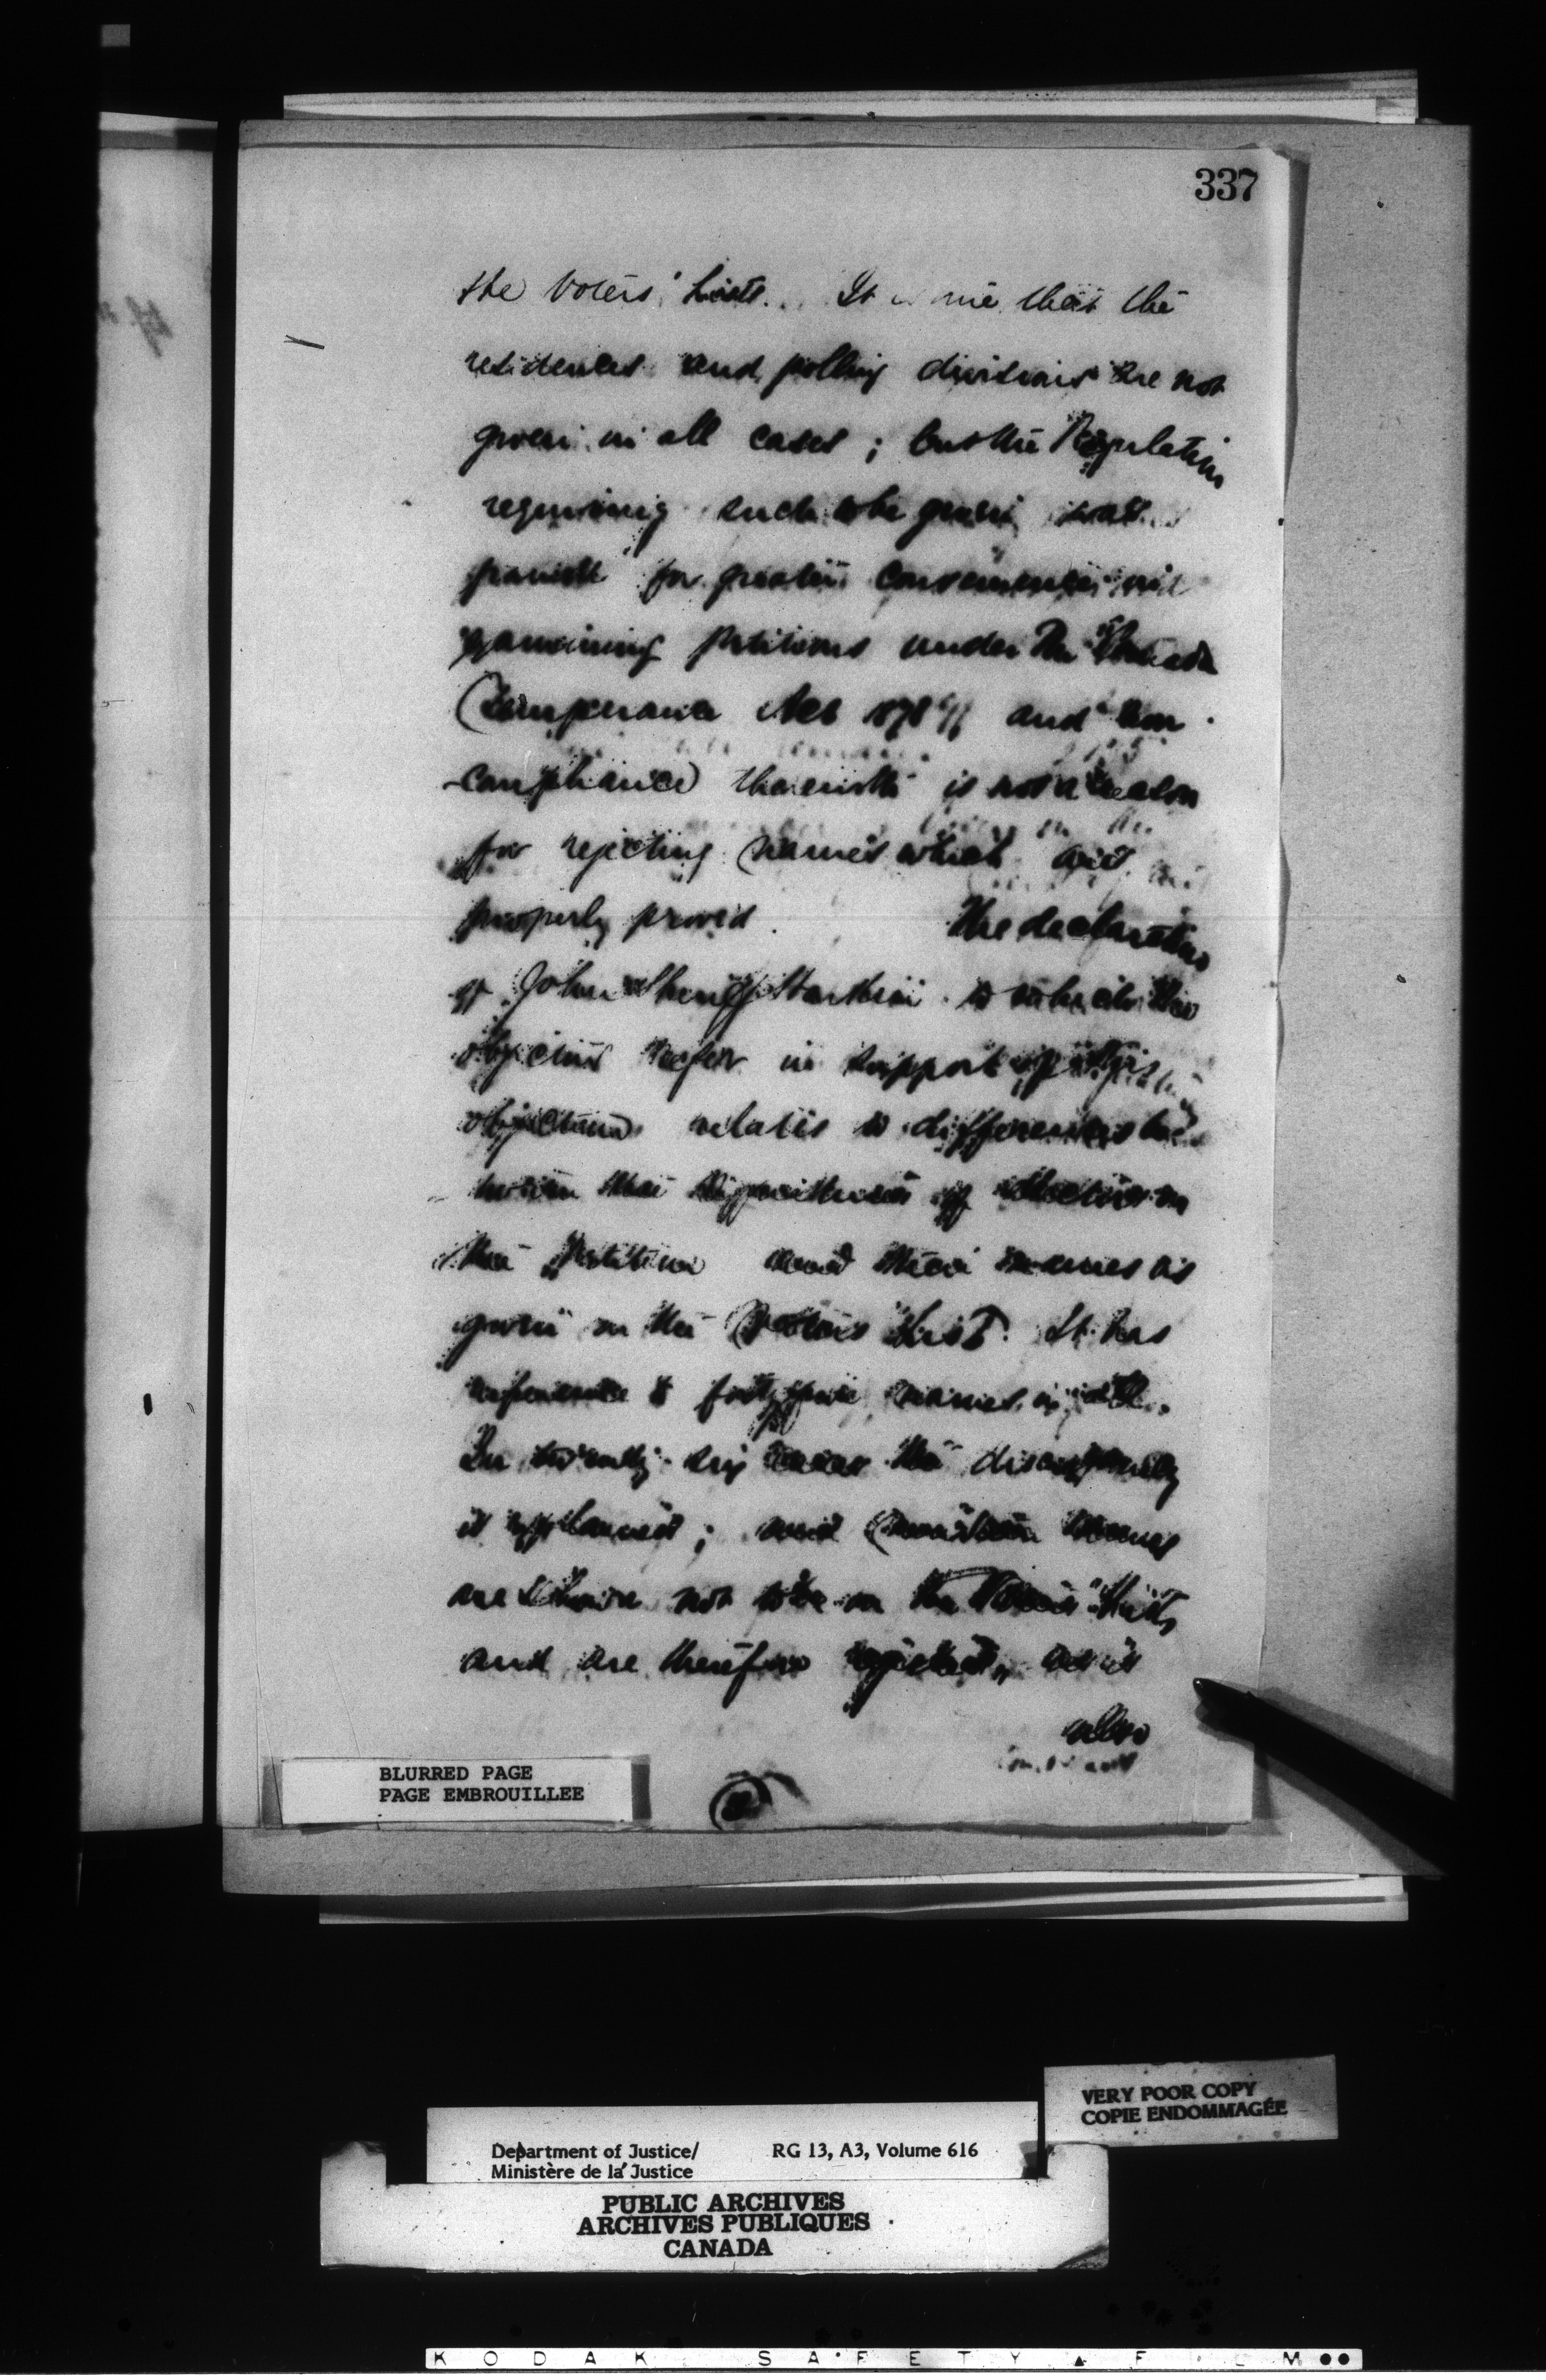 337
the Voters' Lists. It is true that the
residences and polling divisions are not
given in all cases; but the Regulation
requiring such to be given was
framed for greater convenience in
examining petitions under the "Canada
Temperance Act 1878" and non
-compliance therewith is not a reason
for rejecting names which are
properly proved. The declaration
of John Henry to which the
objectors refer in support of this
objection relates to differences be-
tween the signatures of electors on
the petition and their names as
given on the Voters List. It has
reference to forty names in all.
In twenty six cases the discrepancy
is explained; and names
are shown not to be on the Voters' Lists,
and are therefore rejected, as is
also
BLURRED PAGE
PAGE EMBROUILLEE
VERY POOR COPY
COPIE ENDOMMAGÉE
Department of Justice/ RG 13, A3, Volume 616
Ministère de la Justice
PUBLIC ARCHIVES
ARCHIVES PUBLIQUES
CANADA
KODAK SAFETY FILM